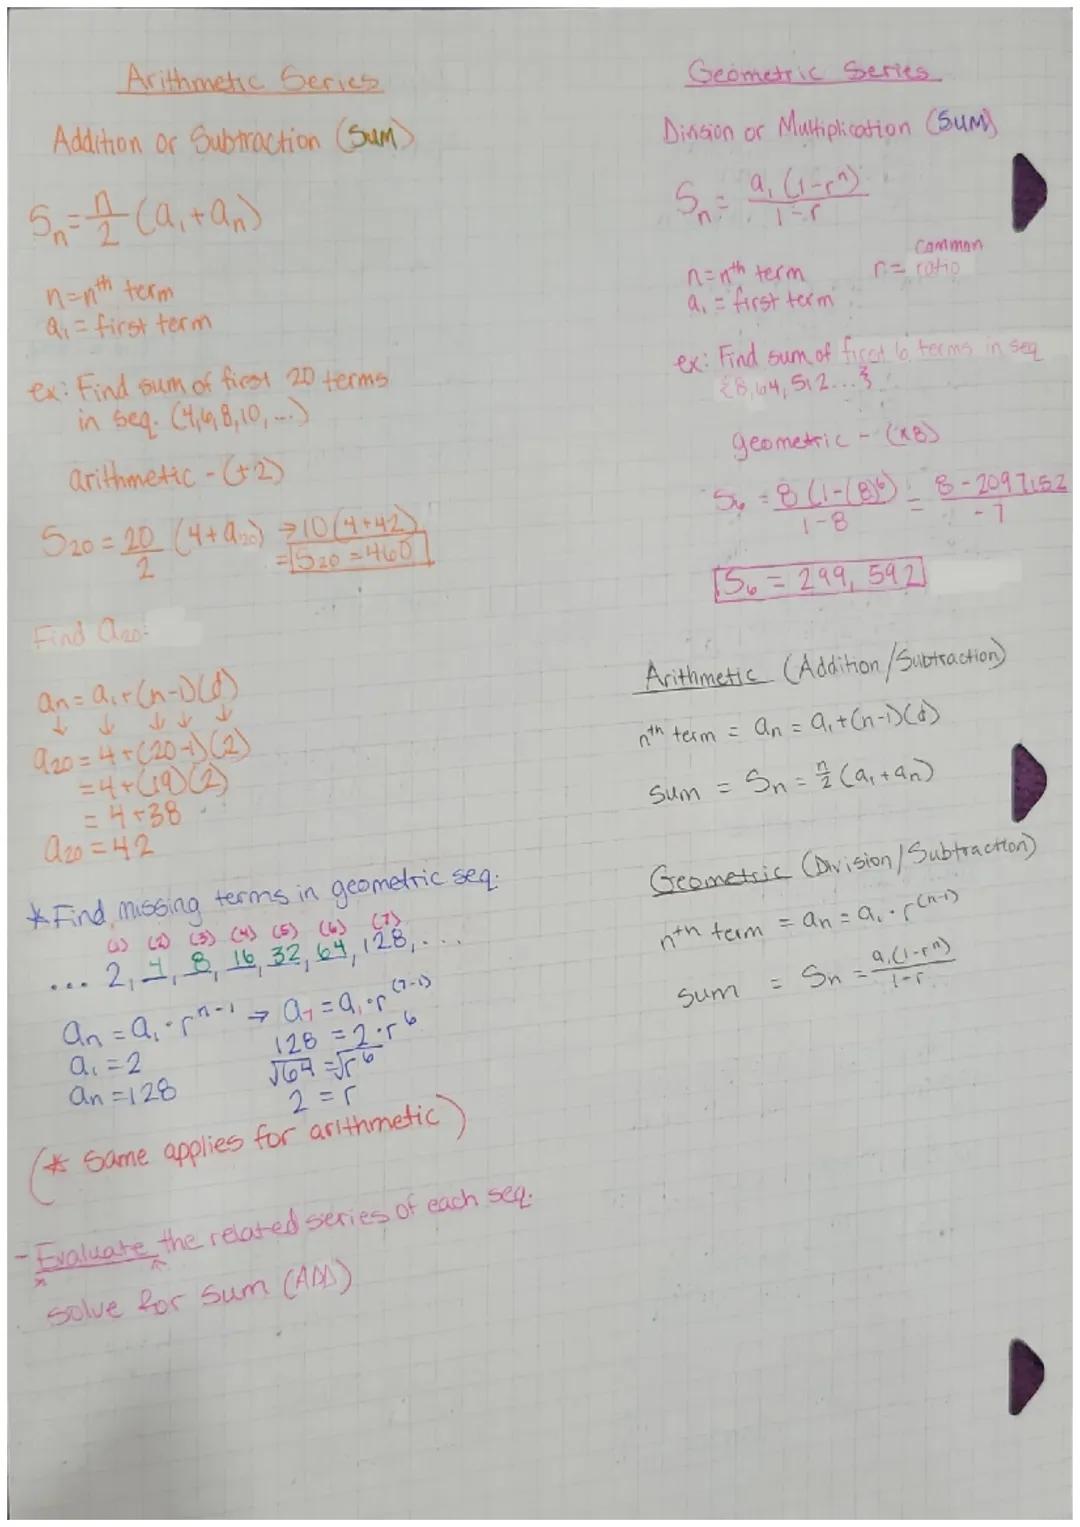 Arithmetic Series
Addition or Subtraction (Sum)
Sₙ = n/2 (a₁ + aₙ)
n = nᵗʰ term
a₁ = first term
ex: Find sum of first 20 terms
in seq. (4,6,8,10, ...)
arithmetic - (+2)
S₂₀ = 20/2 (4+a₂₀) → 10(4+42)
= S₂₀ = 460
Find a₂₀:
aₙ = a₁+(n-1)(d)
↓ ↓ ↓ ↓ ↓
a₂₀ = 4+(20-1)(2)
= 4+(19)(2)
= 4+38
a₂₀ = 42
* Find missing terms in geometric seq.
(1) (2) (3) (4) (5) (6) (7)
... 2, 4, 8, 16, 32, 64, 128, ...
aₙ = a₁·rⁿ⁻¹ → a₇ = a₁·r⁽⁷⁻¹⁾
a₁ = 2 128 = 2·r⁶
aₙ = 128 √64 = √r⁶
2 = r
(* Same applies for arithmetic)
- Evaluate the related series of each seq.
solve for sum (ADD)
Geometric Series
Division or Multiplication (Sum)
Sₙ = a₁(1-rⁿ) / 1-r
n = nᵗʰ term r = common ratio
a₁ = first term
ex: Find sum of first 6 terms in seq
{8,64,512...}
geometric - (x8)
S₆ = 8(1-(8)⁶) / 1-8 = 8-2097152 / -7
S₆ = 299,592
Arithmetic (Addition/Subtraction)
nᵗʰ term = aₙ = a₁+(n-1)(d)
sum = Sₙ = n/2 (a₁+aₙ)
Geometric (Division/Subtraction)
nth term = aₙ = a₁·r⁽ⁿ⁻¹⁾
sum = Sₙ = a₁(1-rⁿ) / 1-r